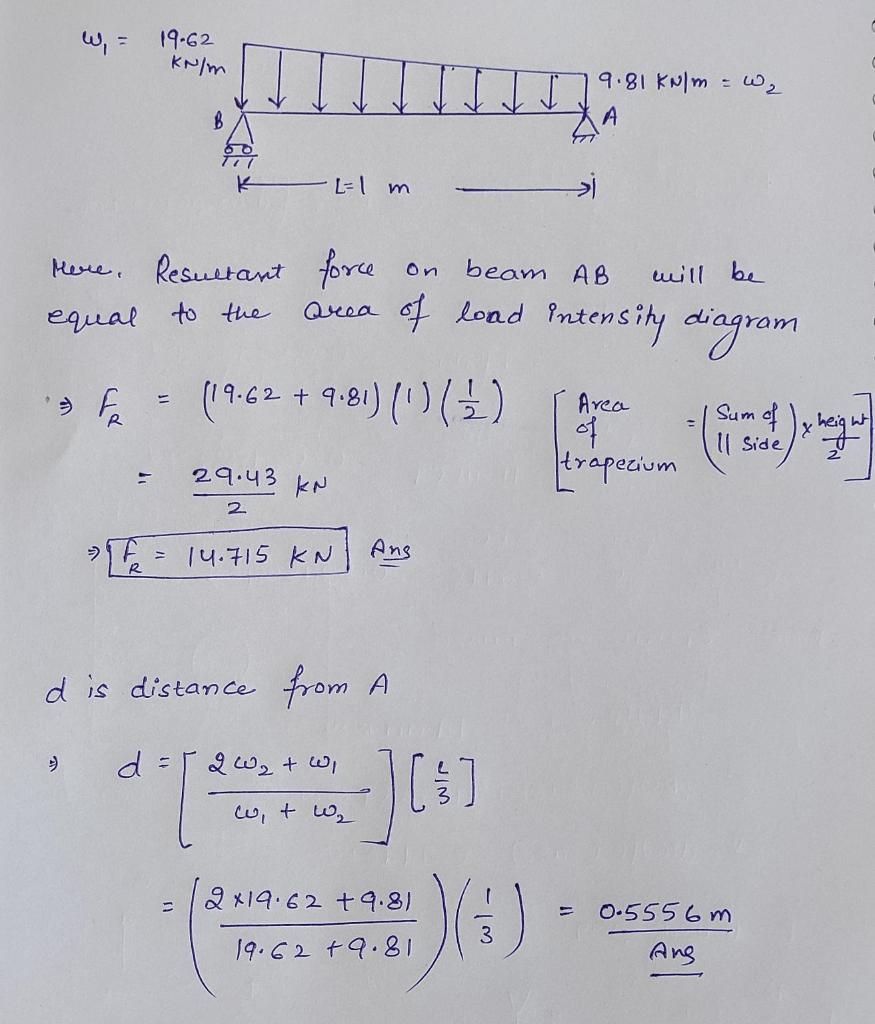 w₁ = 19.62
KN/m
9.81 KN/m = w₂
B
A
L=1 m
Here, Resultant force on beam AB will be
equal to the area of load intensity diagram
⇒ F_R = (19.62 + 9.81) (1) (1/2) [Area of trapezium = (Sum of || side) x height/2]
= 29.43/2 KN
⇒ F_R = 14.715 KN Ans
d is distance from A
⇒ d = [2w₂ + w₁ / w₁ + w₂] [L/3]
= (2×19.62 + 9.81 / 19.62 + 9.81) (1/3) = 0.5556 m
Ans